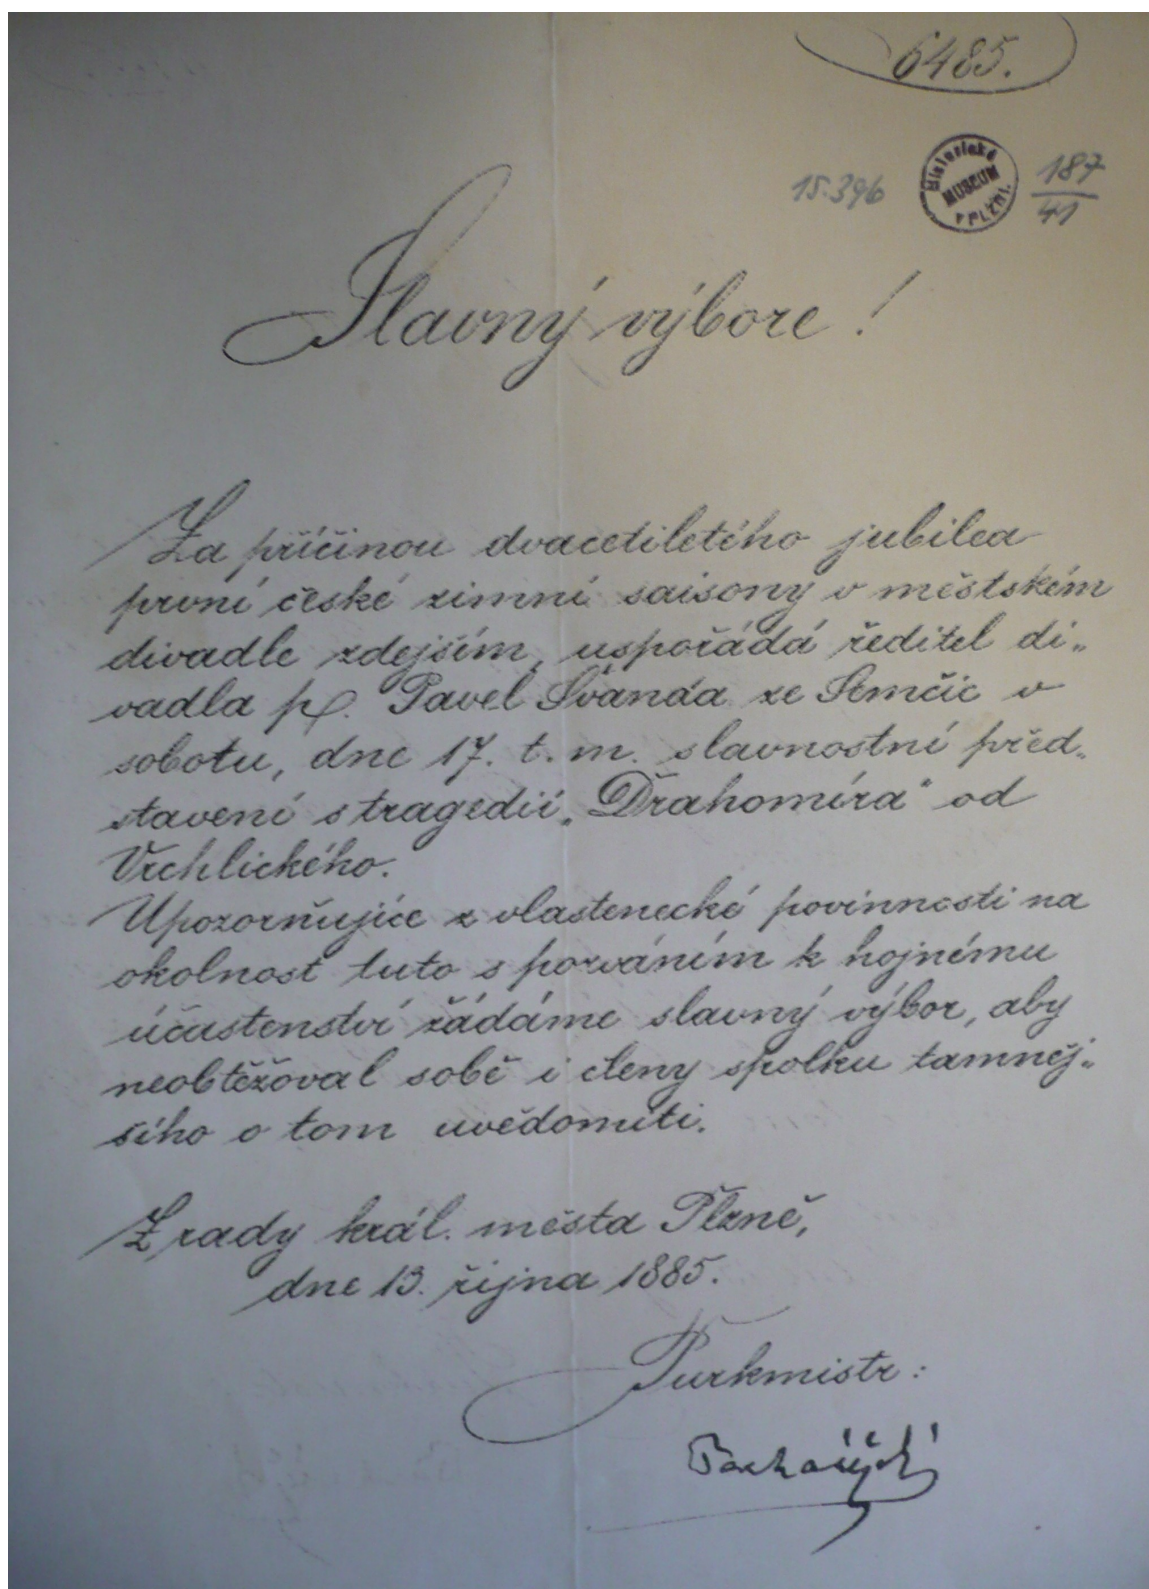 6485.
15.396
Historické
MUSEUM
V PLZNI.
187
41
Slavný výbore!
Za příčinou dvacetiletého jubilea
první české zimní saisony v městském
divadle zdejším, uspořádá ředitel di„
vadla p. Pavel Švanda ze Semčic v
sobotu, dne 17. t. m. slavnostní před„
stavení s tragedií „Drahomíra" od
Vrchlického.
Upozorňujíce z vlastenecké povinnosti na
okolnost tuto s pozváním k hojnému
účastenství žádáme slavný výbor, aby
neobtěžoval sobě i členy spolku tamněj„
šího o tom uvědomiti.
Z rady král. města Plzně,
dne 13. října 1885.
Purkmistr: